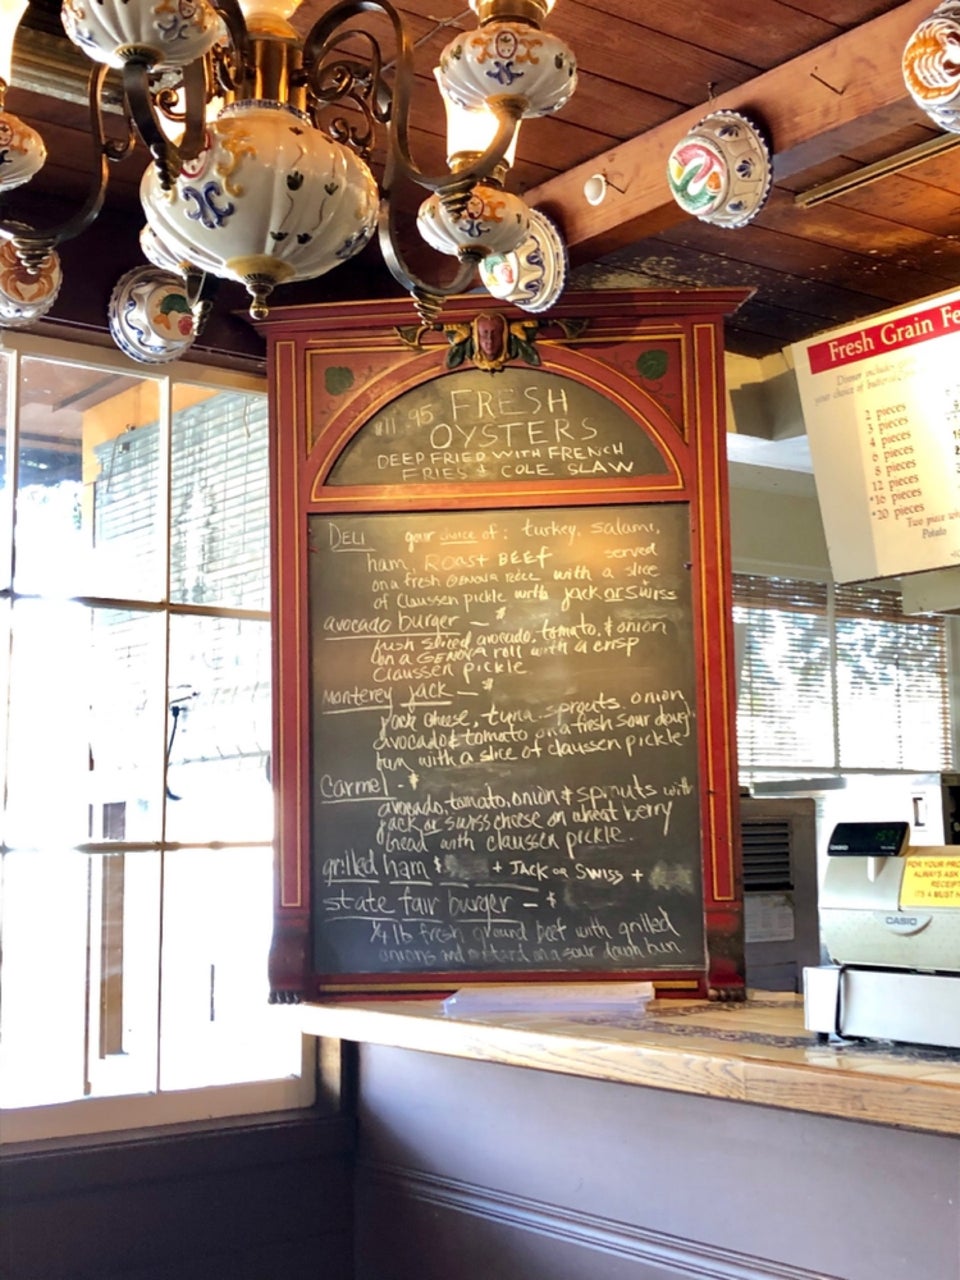 $11.95 FRESH
OYSTERS
DEEP FRIED WITH FRENCH
FRIES & COLE SLAW
DELI your choice of: turkey, salami,
ham, ROAST BEEF served
on a fresh GENOVA ROLL with a slice
of Claussen pickle with jack or swiss
avocado burger — $
fresh sliced avocado, tomato, & onion
on a GENOVA roll with a crisp
Claussen pickle
Monterey jack — $
jack cheese, tuna, sprouts, onion
avocado & tomato on a fresh sour doug
bun with a slice of claussen pickle
Carmel - $
avocado, tomato, onion & sprouts with
jack or swiss cheese on wheat berry
bread with claussen pickle.
grilled ham $ + JACK OR SWISS +
state fair burger — $
1/4 lb fresh ground beef with grilled
onions and mustard on a sour dough bun.
Fresh Grain Fe
Dinner includes
your choice of
2 pieces
3 pieces
4 pieces
6 pieces
8 pieces
12 pieces
*16 pieces
*20 pieces
Two piece
Potato
CASIO
FOR YOUR PRO
ALWAYS ASK
RECEIPT
IT'S A MUST
CASIO